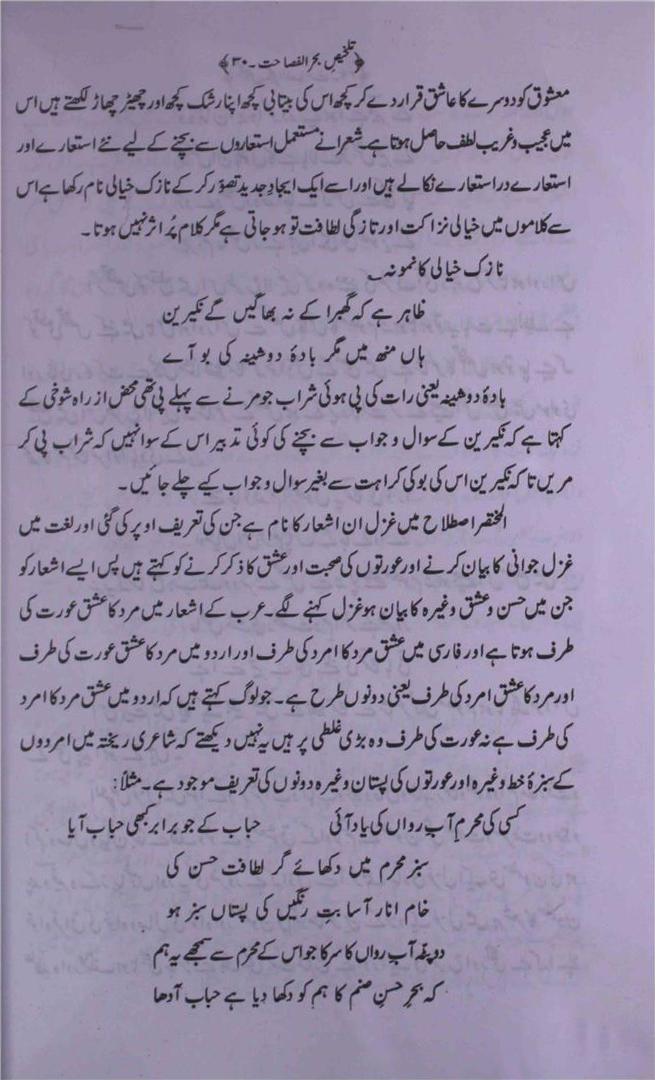 ﴿تلخیص بحر الفصاحت ۔ ۳۰﴾
معشوق کو دوسرے کا عاشق قرار دے کر کچھ اس کی بیتابی کچھ اپنا رشک کچھ اور چھیڑ چھاڑ لکھتے ہیں اس
میں عجیب و غریب لطف حاصل ہوتا ہے۔ شعرا نے مستعمل استعاروں سے بچنے کے لیے نئے استعارے اور
استعارے در استعارے نکالے ہیں اور اسے ایک ایجادِ جدید تصوّر کر کے نازک خیالی نام رکھا ہے اس
سے کلاموں میں خیالی نزاکت اور تازگی لطافت تو ہو جاتی ہے مگر کلام پُر اثر نہیں ہوتا۔
نازک خیالی کا نمونہ ؎
ظاہر ہے کہ گھبرا کے نہ بھاگیں گے نکیرین
ہاں منھ میں مگر بادۂ دوشینہ کی بو آے
بادۂ دوشینہ یعنی رات کی پی ہوئی شراب جو مرنے سے پہلے پی تھی محض از راہ شوخی کے
کہتا ہے کہ نکیرین کے سوال و جواب سے بچنے کی کوئی تدبیر اس کے سوا نہیں کہ شراب پی کر
مریں تاکہ نکیرین اس کی بو کی کراہت سے بغیر سوال و جواب کیے چلے جائیں۔
المختصر اصطلاح میں غزل ان اشعار کا نام ہے جن کی تعریف اوپر کی گئی اور لغت میں
غزل جوانی کا بیان کرنے اور عورتوں کی صحبت اور عشق کا ذکر کرنے کو کہتے ہیں پس ایسے اشعار کو
جن میں حسن و عشق وغیرہ کا بیان ہو غزل کہنے لگے۔ عرب کے اشعار میں مرد کا عشق عورت کی
طرف ہوتا ہے اور فارسی میں عشق مرد کا امرد کی طرف اور اردو میں مرد کا عشق عورت کی طرف
اور مرد کا عشق امرد کی طرف یعنی دونوں طرح ہے۔ جو لوگ کہتے ہیں کہ اردو میں عشق مرد کا امرد
کی طرف ہے نہ عورت کی طرف وہ بڑی غلطی پر ہیں یہ نہیں دیکھتے کہ شاعری ریختہ میں امردوں
کے سبزۂ خط وغیرہ اور عورتوں کی پستان وغیرہ دونوں کی تعریف موجود ہے۔ مثلاً:
کسی کی محرمِ آبِ رواں کی یاد آئی حباب کے جو برابر کبھی حباب آیا
سبز محرم میں دکھائے گر لطافت حسن کی
خام انار آسا بتِ رنگیں کی پستاں سبز ہو
دوپٹہ آبِ رواں کا سرکا جو اس کے محرم سے سمجھے یہ ہم
کہ بحرِ حسنِ صنم کا ہم کو دکھا دیا ہے حباب آدھا